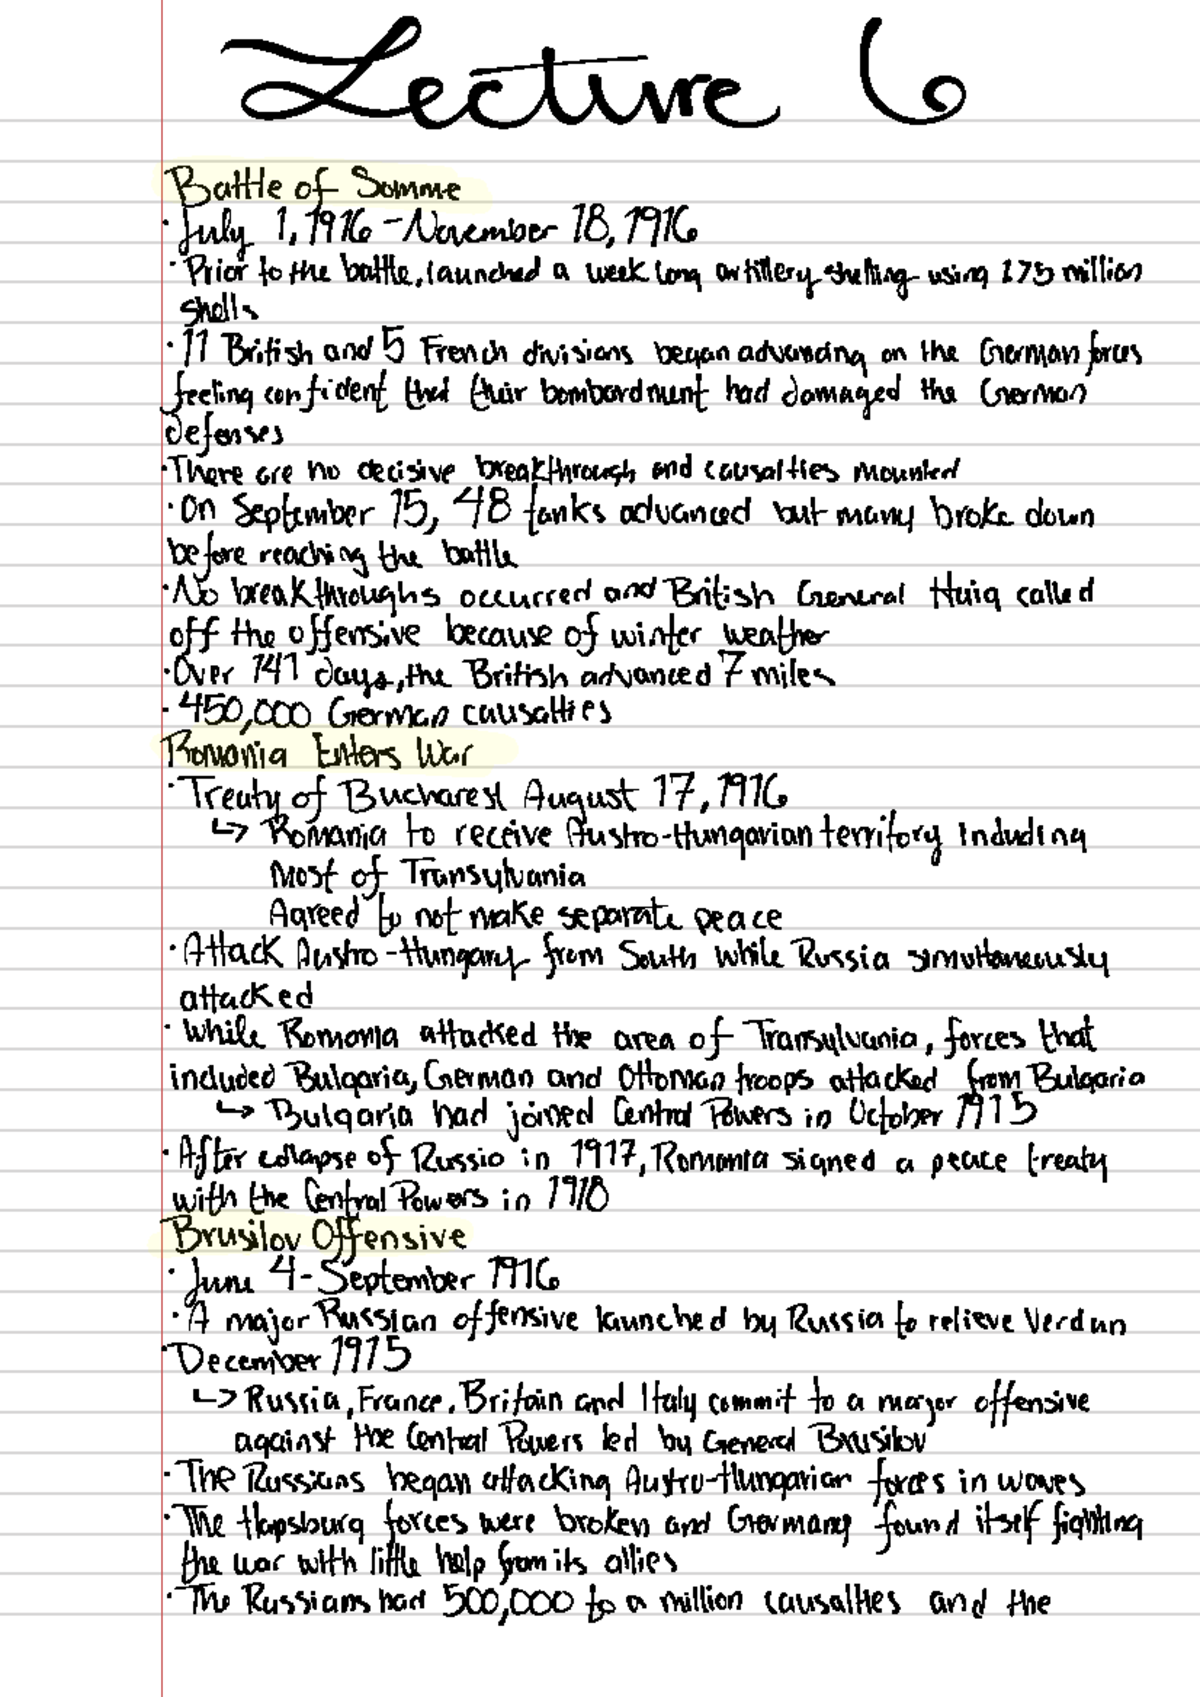 Lecture 6
Battle of Somme
· July 1, 1916 - November 18, 1916
· Prior to the battle, launched a week long artillery shelling using 1.75 million
shells
· 11 British and 5 French divisions began advancing on the German forces
feeling confident that their bombardment had damaged the German
defenses
· There are no decisive breakthrough and causalties mounted
· On September 15, 48 tanks advanced but many broke down
before reaching the battle
· No breakthroughs occurred and British General Haig called
off the offensive because of winter weather
· Over 141 days, the British advanced 7 miles
· 450,000 German causalties
Romania Enters War
· Treaty of Bucharest August 17, 1916
↳ Romania to receive Austro-Hungarian territory including
Most of Transylvania
Agreed to not make separate peace
· Attack Austro-Hungary from South while Russia simultaneously
attacked
· While Romania attacked the area of Transylvania, forces that
included Bulgaria, German and Ottoman troops attacked from Bulgaria
↳ Bulgaria had joined Central Powers in October 1915
· After collapse of Russia in 1917, Romania signed a peace treaty
with the Central Powers in 1918
Brusilov Offensive
· June 4 - September 1916
· A major Russian offensive launched by Russia to relieve Verdun
· December 1915
↳ Russia, France, Britain and Italy commit to a major offensive
against the Central Powers led by General Brusilov
· The Russians began attacking Austro-Hungarian forces in waves
· The Hapsburg forces were broken and Germany found itself fighting
the war with little help from its allies
· The Russians had 500,000 to a million causalties and the